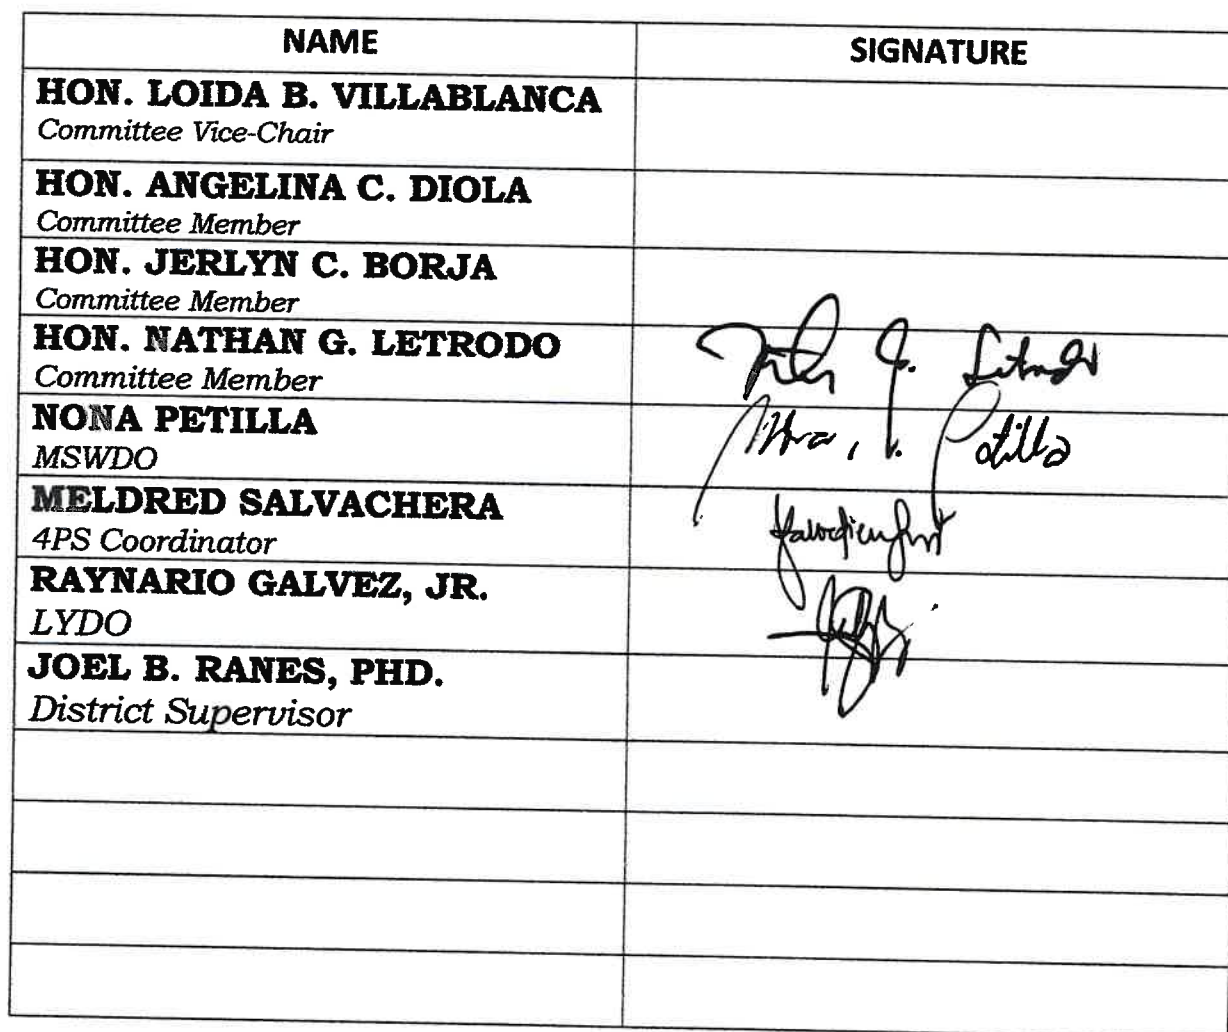 NAME SIGNATURE
HON. LOIDA B. VILLABLANCA
Committee Vice-Chair
HON. ANGELINA C. DIOLA
Committee Member
HON. JERLYN C. BORJA
Committee Member
HON. NATHAN G. LETRODO
Committee Member
NONA PETILLA
MSWDO
MELDRED SALVACHERA
4PS Coordinator
RAYNARIO GALVEZ, JR.
LYDO
JOEL B. RANES, PHD.
District Supervisor